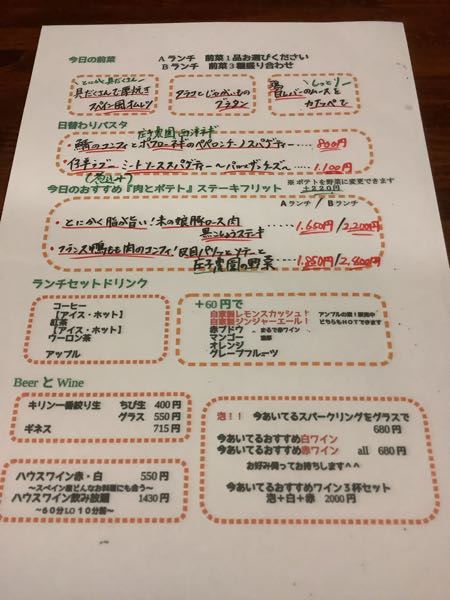 今日の前菜
Aランチ 前菜1品お選びください
Bランチ 前菜3種盛り合わせ
とにかく具だくさん!
具だくさんで厚焼き
スペイン風オムレツ
タラコとじゃがいもの
グラタン
しっとり!
レバーのムースを
カナッペで
日替わりパスタ
庄子農園 西洋ネギ
・鯖のコンフィとポワローネギのペペロンチーノスパゲティー……800円
・仔羊ラグーミートソーススパゲティー〜パルミジャンチーズ〜……1,100円
(煮込み)
今日のおすすめ『肉とポテト』ステーキフリット
※ポテトを野菜に変更できます
+220円
Aランチ / Bランチ
・とにかく脂が旨い!米の娘豚ロース肉
黒こしょうステーキ……1,650円/2,200円
・フランス鴨もも肉のコンフィ!皮目パリッとソテーと
庄子農園の野菜……1,850円/2,400円
ランチセットドリンク
コーヒー
【アイス・ホット】
紅茶
【アイス・ホット】
ウーロン茶
アップル
+60円で
自家製レモンスカッシュ!
自家製ジンジャーエール!
アンプルの森!販売中
どちらもHOTできます
赤ブドウ
まるで赤ワイン
マンゴー
濃厚
オレンジ
グレープフルーツ
Beer と Wine
キリン一番絞り生 ちび生 400円
グラス 550円
ギネス 715円
ハウスワイン赤・白 550円
〜スペイン産どんなお料理にも合う〜
ハウスワイン飲み放題 1430円
〜60分LO10分前〜
泡!! 今あいてるスパークリングをグラスで
680円
今あいてるおすすめ白ワイン
今あいてるおすすめ赤ワイン all 680円
お好み伺ってお持ちします^^
今あいてるおすすめワイン3杯セット
泡+白+赤 2000円